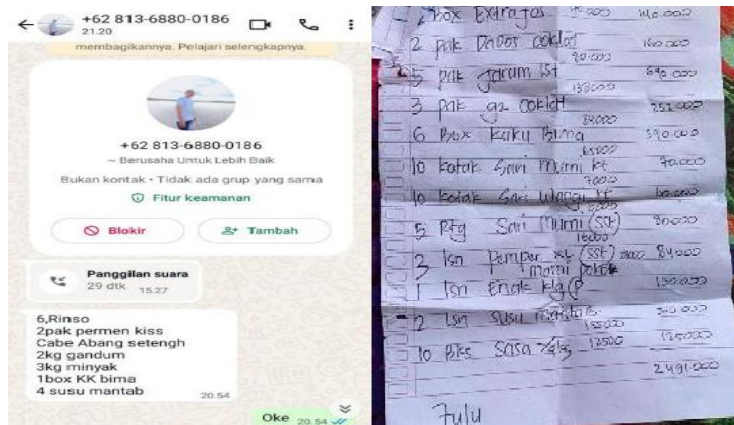 +62 813-6880-0186
21.20
membagikannya. Pelajari selengkapnya.
+62 813-6880-0186
~ Berusaha Untuk Lebih Baik
Bukan kontak • Tidak ada grup yang sama
Fitur keamanan
Blokir
Tambah
Panggilan suara
29 dtk 15.27
6,Rinso
2pak permen kiss
Cabe Abang setengh
2kg gandum
3kg minyak
1box KK bima
4 susu mantab
20.54
Oke 20.54
Box Extra Jos 140.000
2 pak Dados coklat 160.000
80.000
5 pak garam 1st 690.000
138000
3 pak coklat 252.000
84000
6 Box kuku Bima 390.000
65000
10 kotak Sari Murni kt 70.000
7000
10 kotak Sari Wangi kt
5 Ptg Sari Murni (SSt) 80.000
16000
3 lsn Pemper xl (SSt) 28000 84000
1 lsn Enak klg 130.000
2 lsn susu mantab 310.000
155000
10 Bks Sasa 12500 125000
2.491.000
Julu